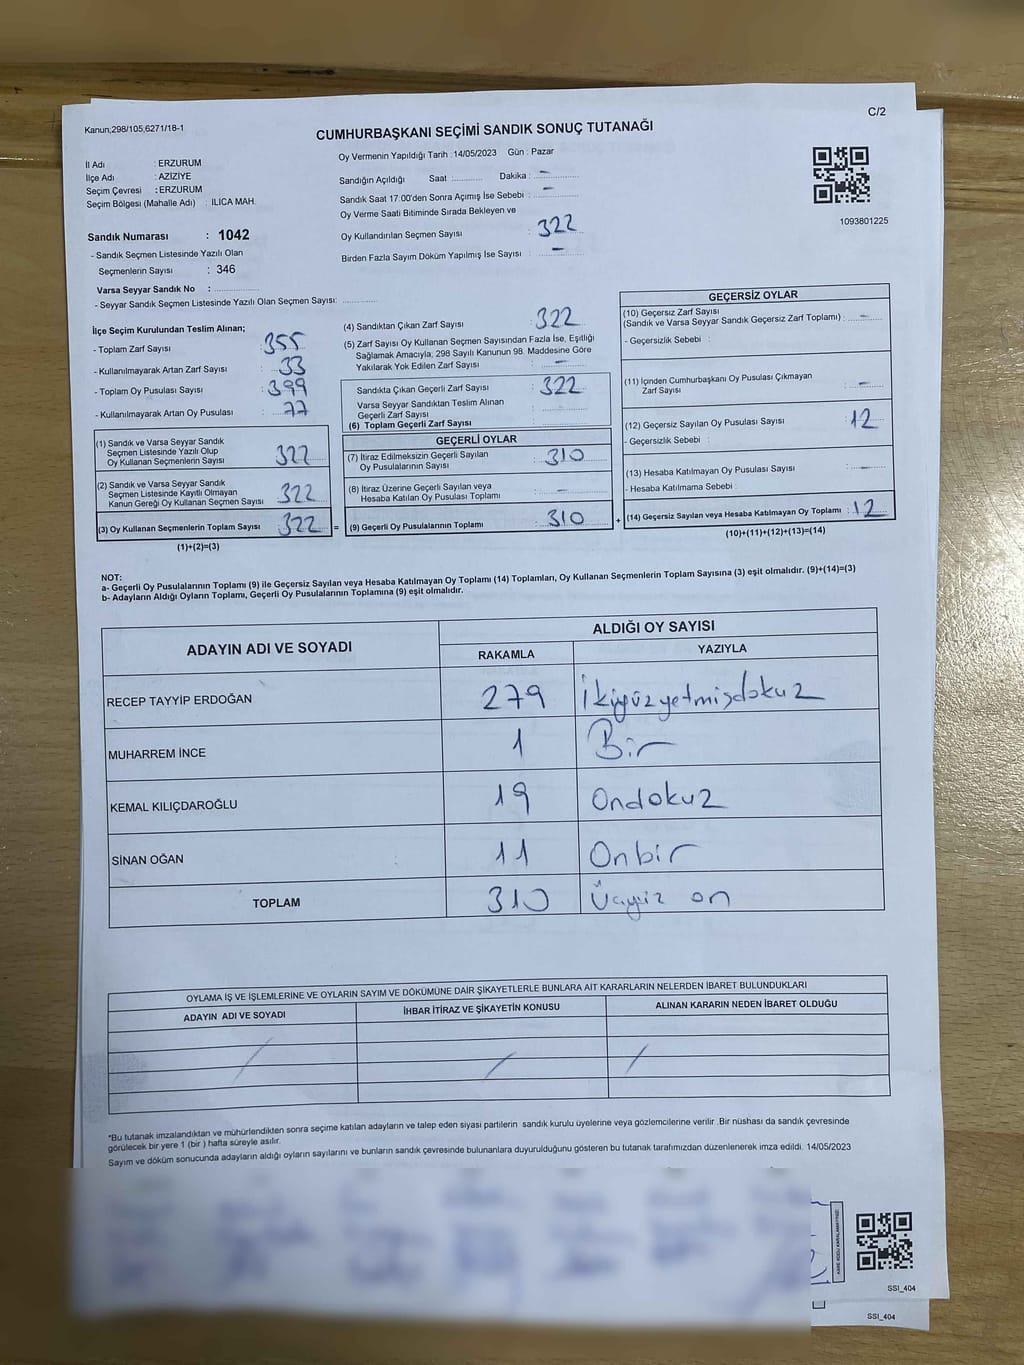 Kanun;298/105,6271/18-1
C/2
CUMHURBAŞKANI SEÇİMİ SANDIK SONUÇ TUTANAĞI
İl Adı : ERZURUM
İlçe Adı : AZIZIYE
Seçim Çevresi : ERZURUM
Seçim Bölgesi (Mahalle Adı) : ILICA MAH.
Sandık Numarası : 1042
- Sandık Seçmen Listesinde Yazılı Olan
Seçmenlerin Sayısı : 346
Varsa Seyyar Sandık No :
- Seyyar Sandık Seçmen Listesinde Yazılı Olan Seçmen Sayısı:
Oy Vermenin Yapıldığı Tarih : 14/05/2023 Gün : Pazar
Sandığın Açıldığı Saat : Dakika : -
Sandık Saat 17:00'den Sonra Açımış İse Sebebi : -
Oy Verme Saati Bitiminde Sırada Bekleyen ve
Oy Kullandırılan Seçmen Sayısı : 322
Birden Fazla Sayım Döküm Yapılmış İse Sayısı : -
1093801225
İlçe Seçim Kurulundan Teslim Alınan;
- Toplam Zarf Sayısı : 355
- Kullanılmayarak Artan Zarf Sayısı : 33
- Toplam Oy Pusulası Sayısı : 399
- Kullanılmayarak Artan Oy Pusulası : 77
(1) Sandık ve Varsa Seyyar Sandık
Seçmen Listesinde Yazılı Olup
Oy Kullanan Seçmenlerin Sayısı : 322
(2) Sandık ve Varsa Seyyar Sandık
Seçmen Listesinde Kayıtlı Olmayan
Kanun Gereği Oy Kullanan Seçmen Sayısı : 322
(3) Oy Kullanan Seçmenlerin Toplam Sayısı : 322 =
(1)+(2)=(3)
(4) Sandıktan Çıkan Zarf Sayısı : 322
(5) Zarf Sayısı Oy Kullanan Seçmen Sayısından Fazla İse, Eşitliği
Sağlamak Amacıyla; 298 Sayılı Kanunun 98. Maddesine Göre
Yakılarak Yok Edilen Zarf Sayısı : -
Sandıkta Çıkan Geçerli Zarf Sayısı : 322
Varsa Seyyar Sandıktan Teslim Alınan
Geçerli Zarf Sayısı :
(6) Toplam Geçerli Zarf Sayısı :
GEÇERLİ OYLAR
(7) İtiraz Edilmeksizin Geçerli Sayılan
Oy Pusulalarının Sayısı : 310
(8) İtiraz Üzerine Geçerli Sayılan veya
Hesaba Katılan Oy Pusulası Toplamı : -
(9) Geçerli Oy Pusulalarının Toplamı : 310 +
GEÇERSİZ OYLAR
(10) Geçersiz Zarf Sayısı
(Sandık ve Varsa Seyyar Sandık Geçersiz Zarf Toplamı) : -
- Geçersizlik Sebebi :
(11) İçinden Cumhurbaşkanı Oy Pusulası Çıkmayan
Zarf Sayısı : -
(12) Geçersiz Sayılan Oy Pusulası Sayısı : 12
- Geçersizlik Sebebi :
(13) Hesaba Katılmayan Oy Pusulası Sayısı : -
- Hesaba Katılmama Sebebi :
(14) Geçersiz Sayılan veya Hesaba Katılmayan Oy Toplamı : 12
(10)+(11)+(12)+(13)=(14)
NOT:
a- Geçerli Oy Pusulalarının Toplamı (9) ile Geçersiz Sayılan veya Hesaba Katılmayan Oy Toplamı (14) Toplamları, Oy Kullanan Seçmenlerin Toplam Sayısına (3) eşit olmalıdır. (9)+(14)=(3)
b- Adayların Aldığı Oyların Toplamı, Geçerli Oy Pusulalarının Toplamına (9) eşit olmalıdır.
ADAYIN ADI VE SOYADI
ALDIĞI OY SAYISI
RAKAMLA YAZIYLA
RECEP TAYYİP ERDOĞAN 279 İkiyüzyetmişdokuz
MUHARREM İNCE 1 Bir
KEMAL KILIÇDAROĞLU 19 Ondokuz
SİNAN OĞAN 11 Onbir
TOPLAM 310 Üçyüz on
OYLAMA İŞ VE İŞLEMLERİNE VE OYLARIN SAYIM VE DÖKÜMÜNE DAİR ŞİKAYETLERLE BUNLARA AİT KARARLARIN NELERDEN İBARET BULUNDUKLARI
ADAYIN ADI VE SOYADI İHBAR İTİRAZ VE ŞİKAYETİN KONUSU ALINAN KARARIN NEDEN İBARET OLDUĞU
*Bu tutanak imzalandıktan ve mühürlendikten sonra seçime katılan adayların ve talep eden siyasi partilerin sandık kurulu üyelerine veya gözlemcilerine verilir .Bir nüshası da sandık çevresinde
görülecek bir yere 1 (bir ) hafta süreyle asılır.
Sayım ve döküm sonucunda adayların aldığı oyların sayılarını ve bunların sandık çevresinde bulunanlara duyurulduğunu gösteren bu tutanak tarafımızdan düzenlenerek imza edildi. 14/05/2023
SSI_404
SSI_404